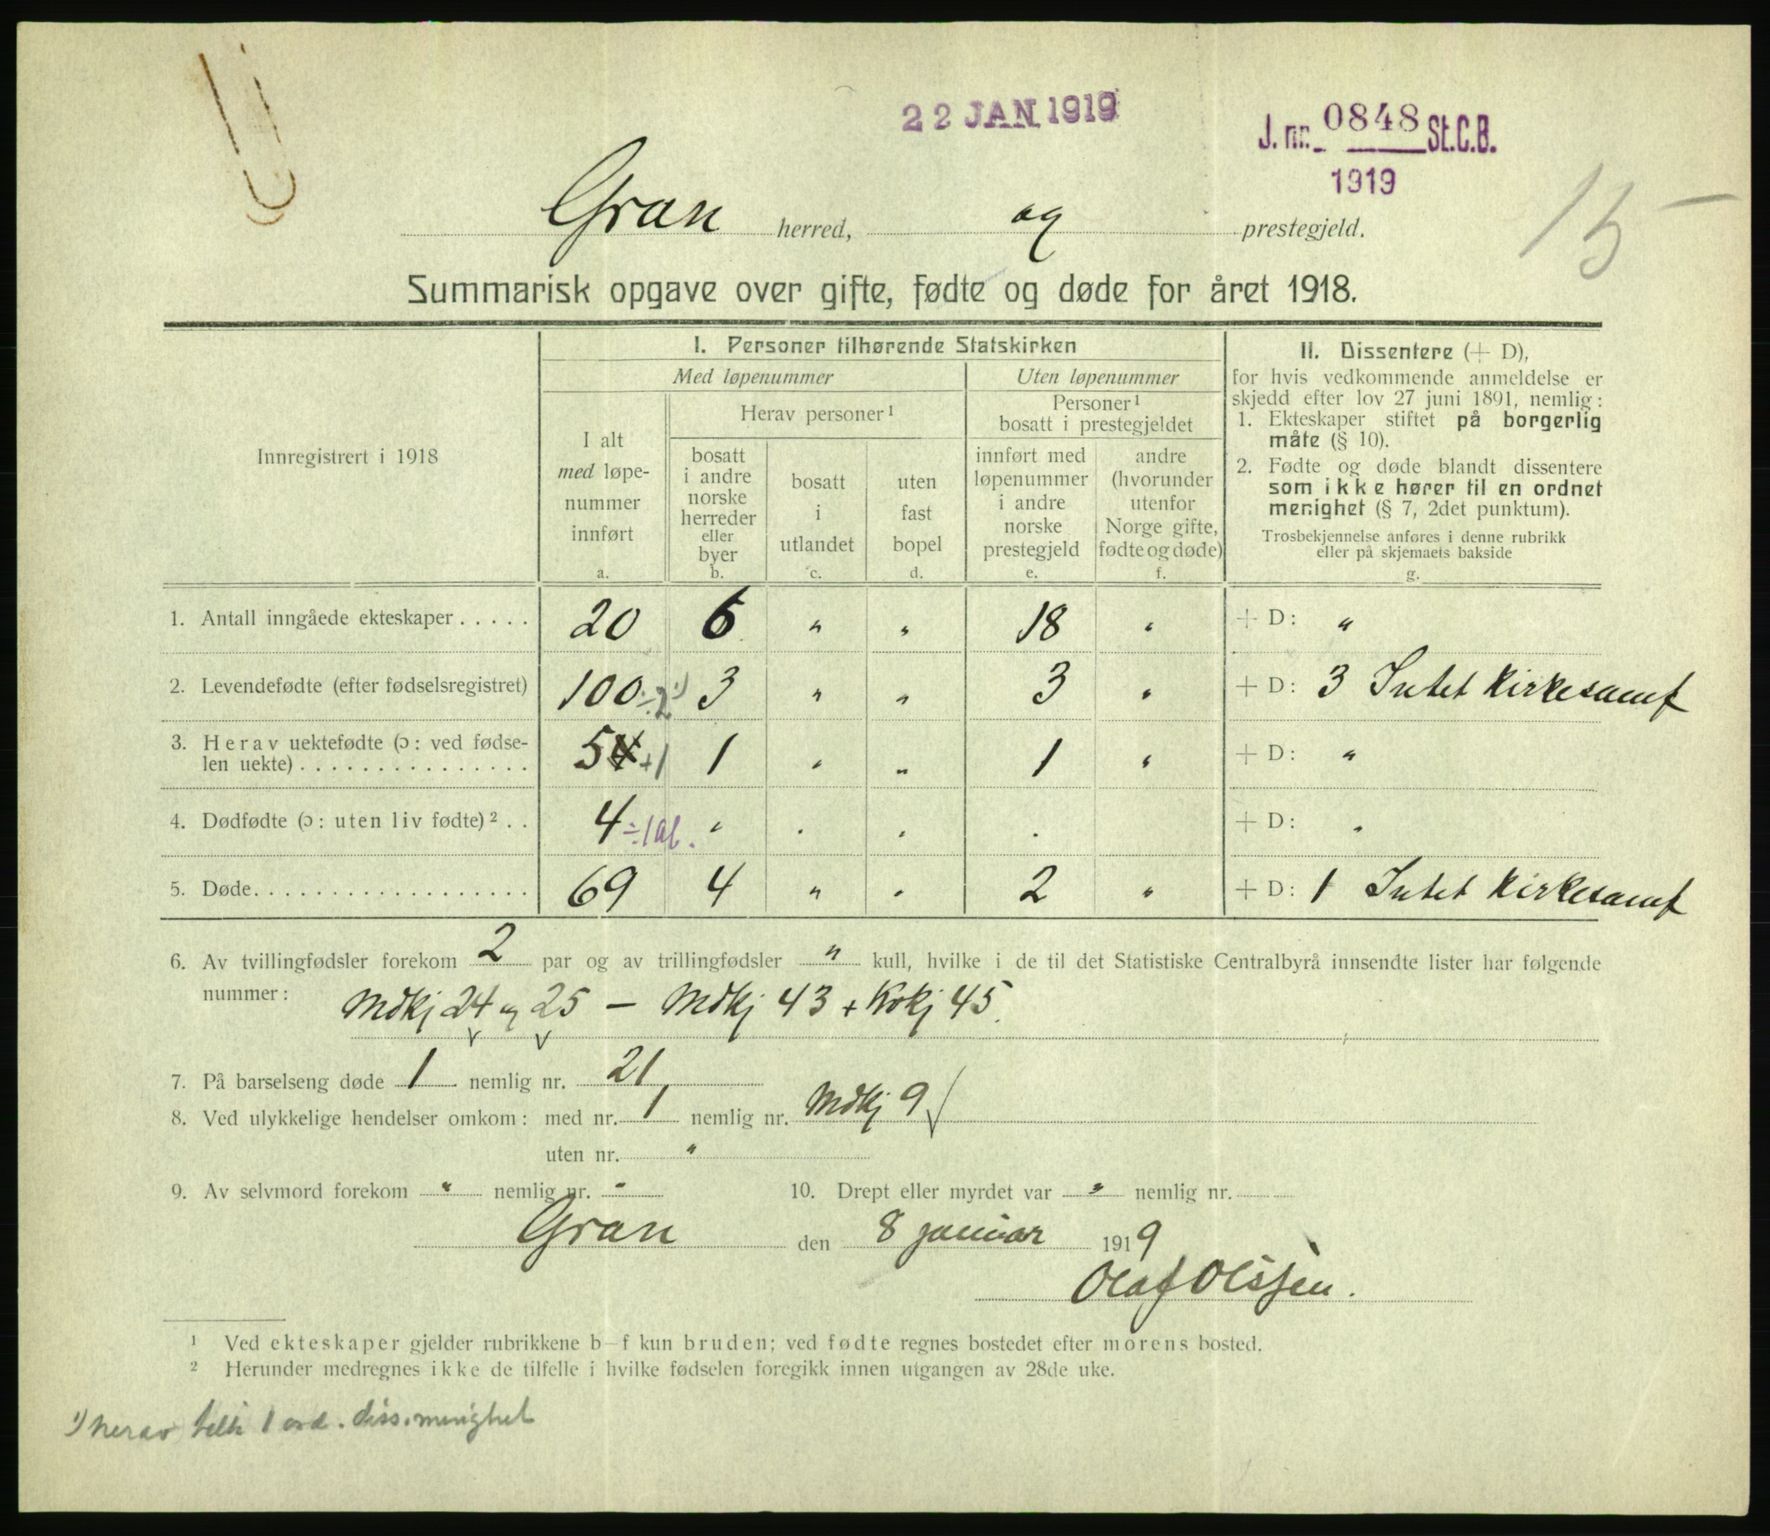 22 JAN 1919
J. nr. 0848 St.C.B.
1919
15
Gran herred, og prestegjeld.
Summarisk opgave over gifte, fødte og døde for året 1918.
Innregistrert i 1918
I. Personer tilhørende Statskirken
Med løpenummer
Uten løpenummer
I alt
med løpe-
nummer
innført
a.
Herav personer ¹
bosatt
i andre
norske
herreder
eller
byer
b.
bosatt
i
utlandet
c.
uten
fast
bopel
d.
Personer ¹
bosatt i prestegjeldet
innført med
løpenummer
i andre
norske
prestegjeld
e.
andre
(hvorunder
utenfor
Norge gifte,
fødte og døde)
f.
II. Dissentere (+ D),
for hvis vedkommende anmeldelse er
skjedd efter lov 27 juni 1891, nemlig:
1. Ekteskaper stiftet på borgerlig
måte (§ 10).
2. Fødte og døde blandt dissentere
som ikke hører til en ordnet
menighet (§ 7, 2det punktum).
Trosbekjennelse anføres i denne rubrikk
eller på skjemaets bakside
g.
1. Antall inngåede ekteskaper . . . . . 20 6 " " 18 " + D: "
2. Levendefødte (efter fødselsregistret) 100 ÷2 ¹) 3 " " 3 " + D: 3 Intet Kirkesamf
3. Herav uektefødte (ɔ: ved fødse-
len uekte) . . . . . . . . . . . . . . . 5 +1 1 " " 1 " + D: "
4. Dødfødte (ɔ: uten liv fødte) ² . . 4 ÷1 ab. " " " " + D: "
5. Døde. . . . . . . . . . . . . . . . . . 69 4 " " 2 " + D: 1 Intet Kirkesamf
6. Av tvillingfødsler forekom 2 par og av trillingfødsler " kull, hvilke i de til det Statistiske Centralbyrå innsendte lister har følgende
nummer: Mdkj 24 og 25 — Mdkj 43 + Kvkj 45.
7. På barselseng døde 1 nemlig nr. 21
8. Ved ulykkelige hendelser omkom: med nr. 1 nemlig nr. Mdkj 9
uten nr. "
9. Av selvmord forekom " nemlig nr. " 10. Drept eller myrdet var " nemlig nr.
Gran den 8 januar 1919
Olaf Olssen.
¹ Ved ekteskaper gjelder rubrikkene b—f kun bruden; ved fødte regnes bostedet efter morens bosted.
² Herunder medregnes ikke de tilfelle i hvilke fødselen foregikk innen utgangen av 28de uke.
¹) herav 1 ord. diss. menighet